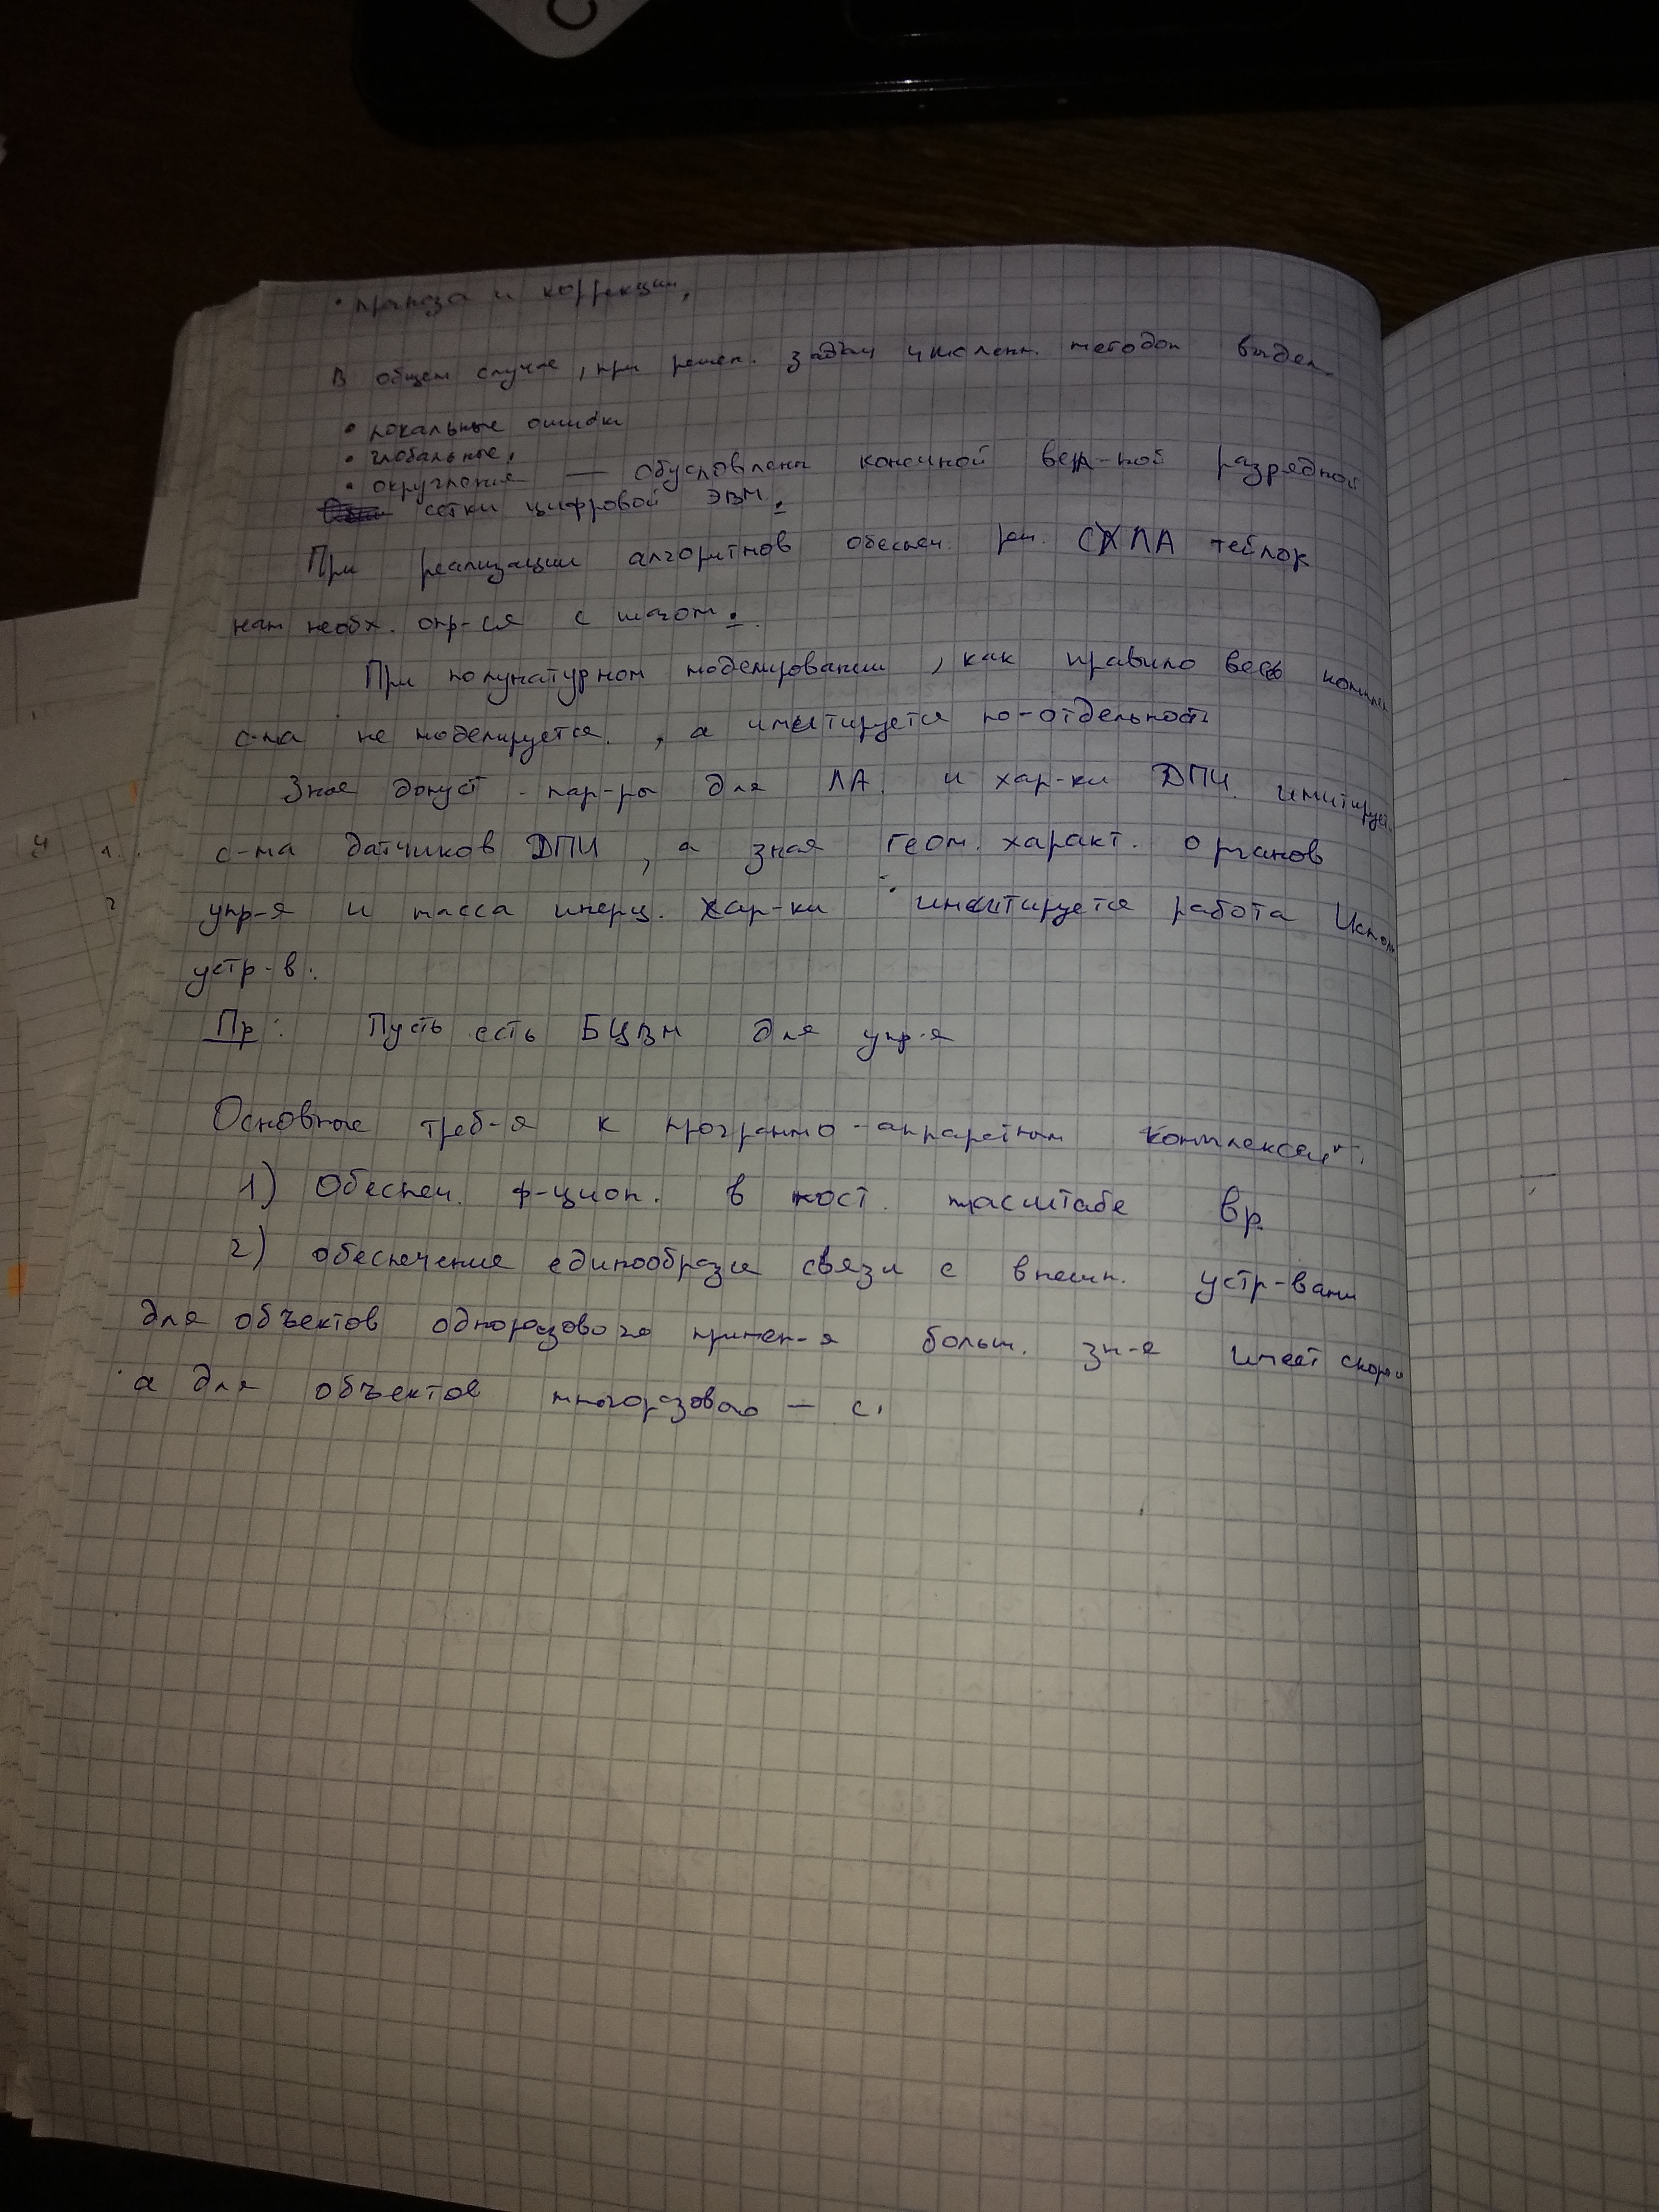 • прогноза и коррекции,
В общем случае, при решен. задач числен. методом выдел.
• локальные ошибки
• глобальные,
• округления — обусловлены конечной вер-ной разрядной
сетки цифровой ЭВМ.
При реализации алгоритмов обеспеч. реш. ЛА
нам необх. опр-ся с шагом.
При полунатурном моделировании, как правило весь
с-ма не моделируется, а имитируется по-отдельност
Зная допуст. пар-ры для ЛА. и хар-ки ДПИ. имитирует.
с-ма датчиков ДПИ, а зная геом. характ. органов
упр-я и масса инерц. хар-ки имитируется работа Исполн
устр-в.
Пр: Пусть есть БЦВМ для упр-я
Основные треб-я к програмно-аппаратным комплексам:
1) Обеспеч. ф-цион. в масштабе вр.
2) обеспечение единообразия связи с внешн. устр-вами
для объектов одноразового примен-я больш. зн-е имеет
а для объектов многоразового — с